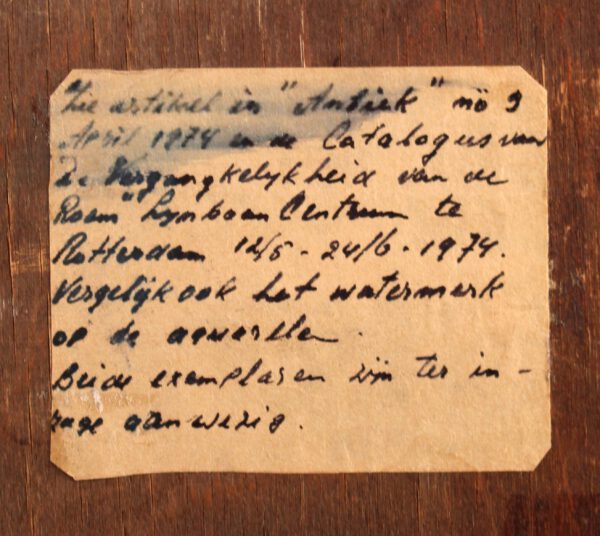 Zie artikel in "Antiek" no 9
April 1974 en de Catalogus van
De Vergangkelijkheid van de
Roem" Lijnbaan Centrum te
Rotterdam 12/5 - 24/6 - 1974.
Vergelijk ook het watermerk
op de aquarelen.
Beide exemplaren zijn ter in-
zage aanwezig.